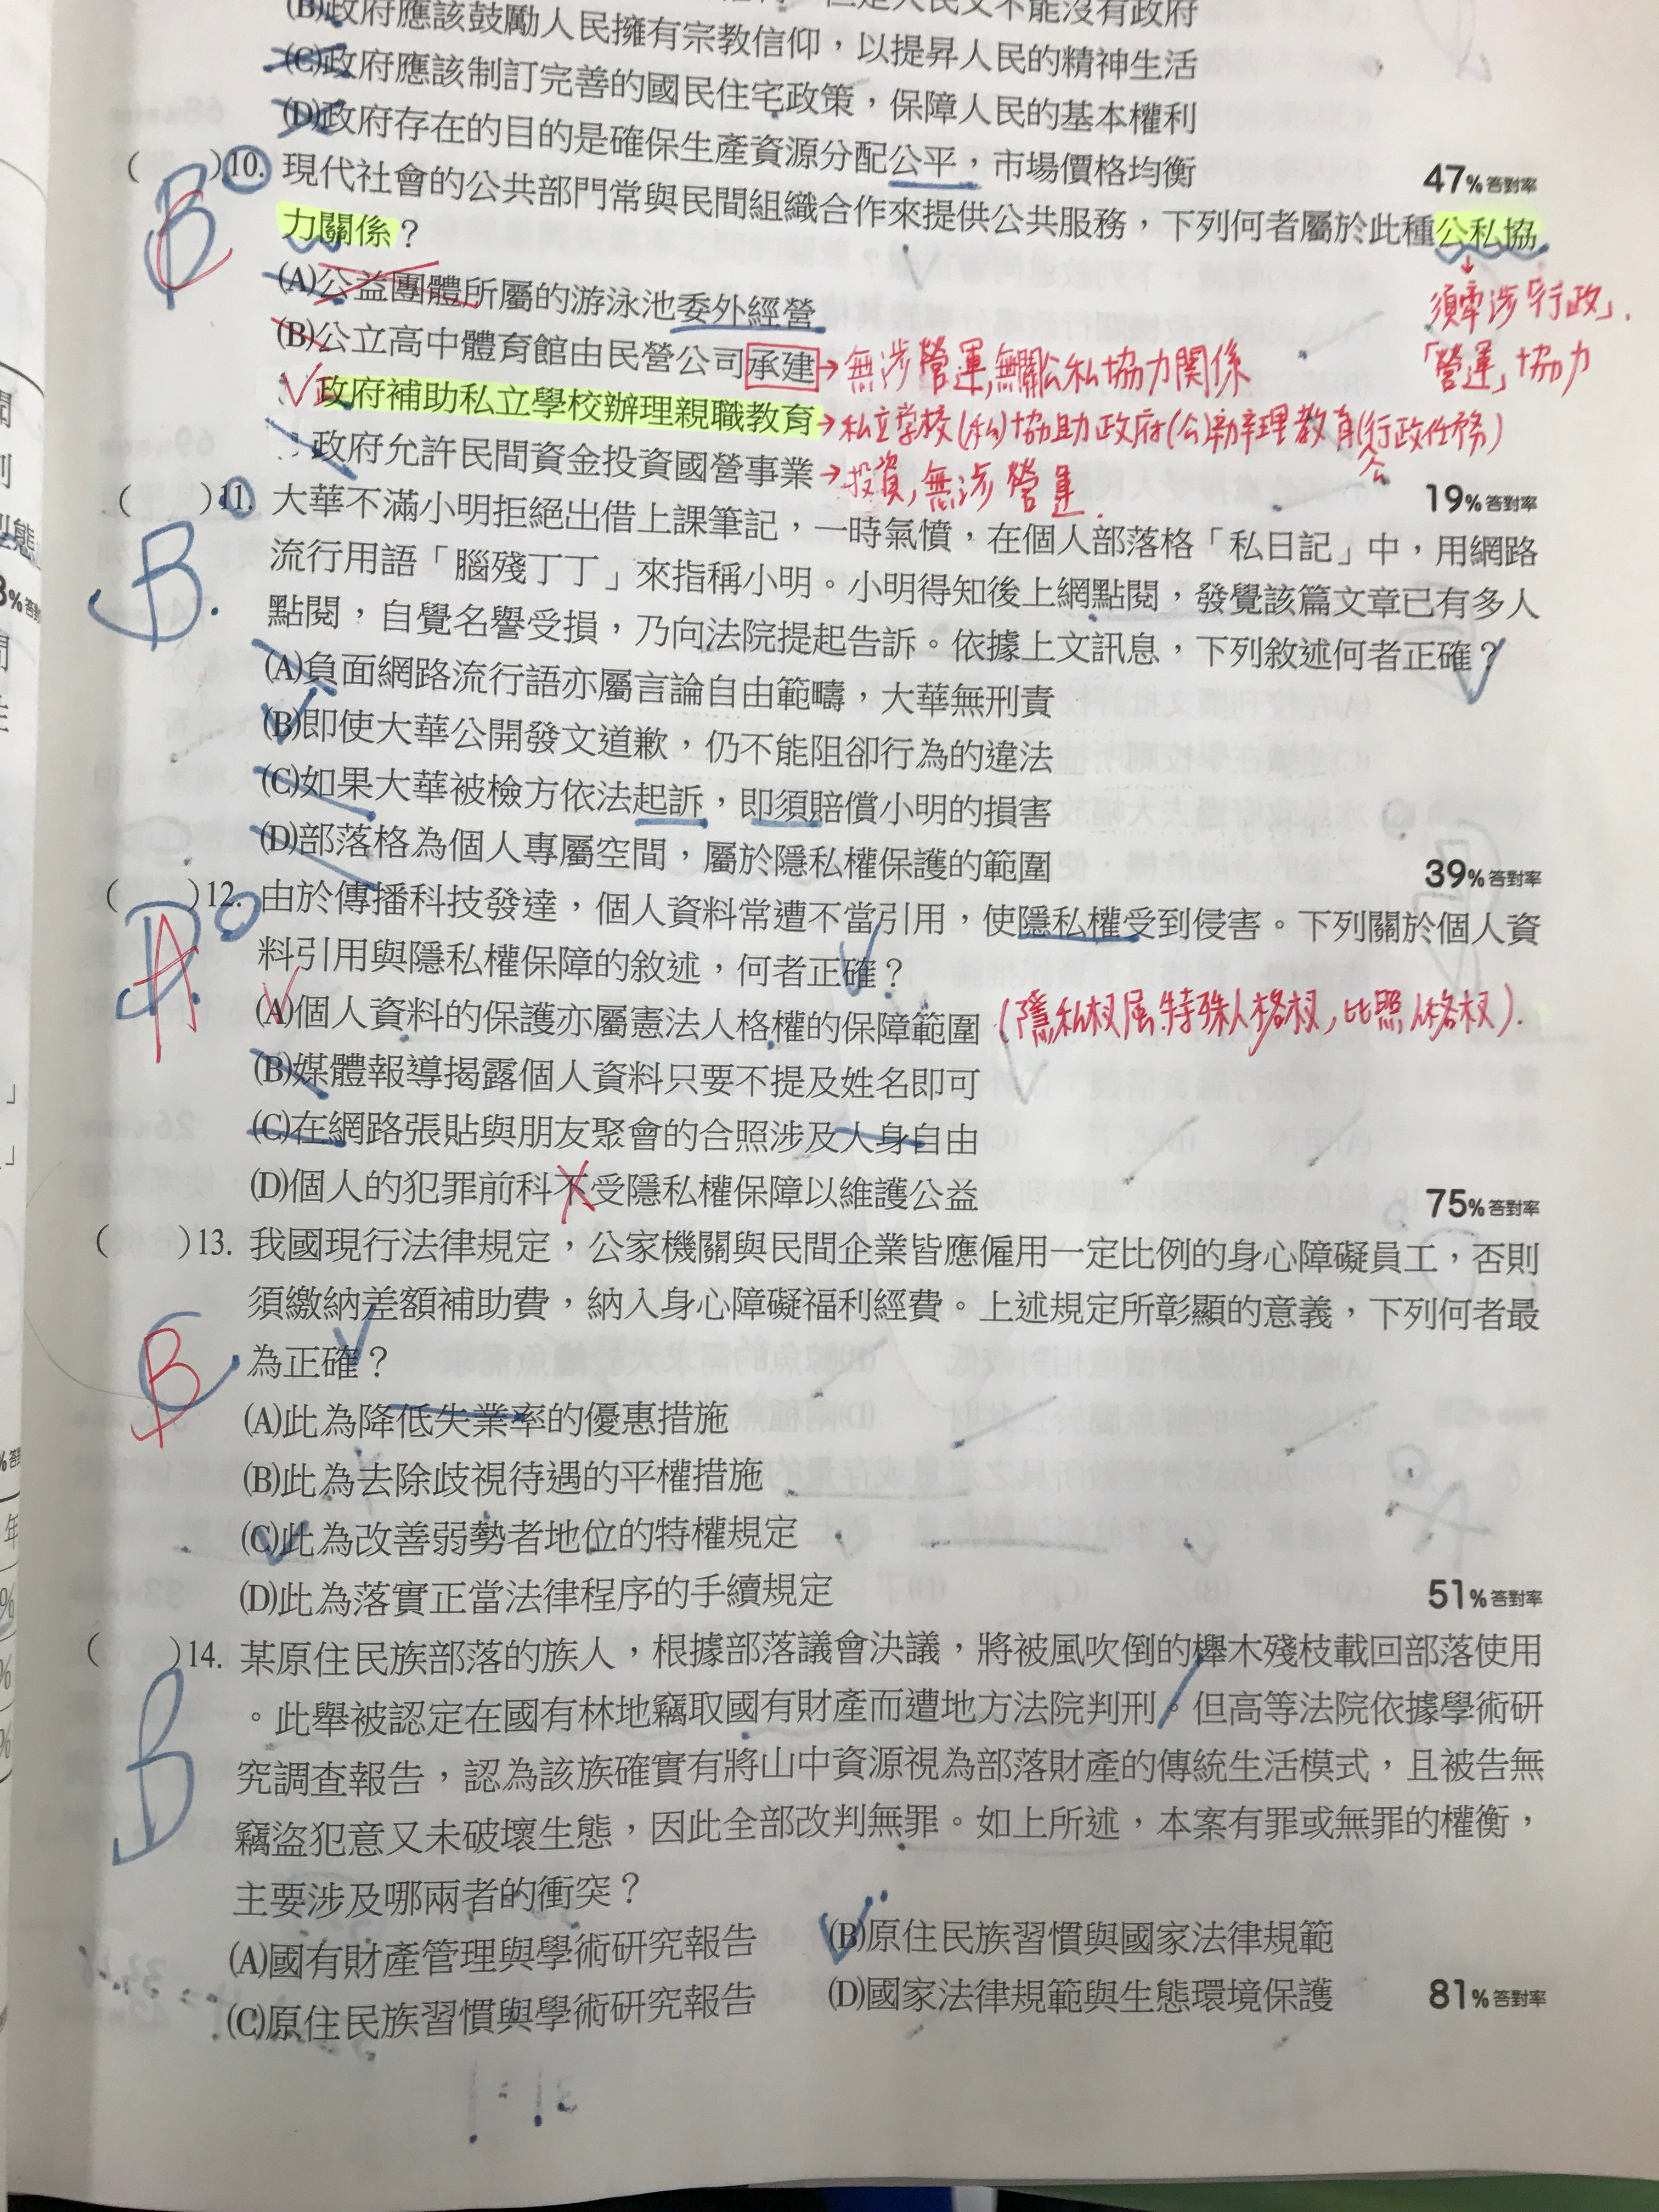 (B)政府應該鼓勵人民擁有宗教信仰，以提昇人民的精神生活
(C)政府應該制訂完善的國民住宅政策，保障人民的基本權利
(D)政府存在的目的是確保生產資源分配公平，市場價格均衡
47%答對率
( )10. 現代社會的公共部門常與民間組織合作來提供公共服務，下列何者屬於此種公私協
B
C
力關係？
須牽涉「行政」.
「營運」協力
(A)公益團體所屬的游泳池委外經營
(B)公立高中體育館由民營公司承建→無涉營運,無關公私協力関係
政府補助私立學校辦理親職教育→私立学校(私)協助政府(公)辦理教育(行政任務)
公
政府允許民間資金投資國營事業→投資,無涉營運.
19%答對率
( )11. 大華不滿小明拒絕出借上課筆記，一時氣憤，在個人部落格「私日記」中，用網路
B.
流行用語「腦殘丁丁」來指稱小明。小明得知後上網點閱，發覺該篇文章已有多人
點閱，自覺名譽受損，乃向法院提起告訴。依據上文訊息，下列敘述何者正確？
(A)負面網路流行語亦屬言論自由範疇，大華無刑責
(B)即使大華公開發文道歉，仍不能阻卻行為的違法
(C)如果大華被檢方依法起訴，即須賠償小明的損害
(D)部落格為個人專屬空間，屬於隱私權保護的範圍
39%答對率
( )12. 由於傳播科技發達，個人資料常遭不當引用，使隱私權受到侵害。下列關於個人資
A
料引用與隱私權保障的敘述，何者正確？
(A)個人資料的保護亦屬憲法人格權的保障範圍 (隱私权属特殊人格权,比照人格权).
(B)媒體報導揭露個人資料只要不提及姓名即可
(C)在網路張貼與朋友聚會的合照涉及人身自由
(D)個人的犯罪前科不受隱私權保障以維護公益
75%答對率
( )13. 我國現行法律規定，公家機關與民間企業皆應僱用一定比例的身心障礙員工，否則
須繳納差額補助費，納入身心障礙福利經費。上述規定所彰顯的意義，下列何者最
C
B
為正確？
(A)此為降低失業率的優惠措施
(B)此為去除歧視待遇的平權措施
(C)此為改善弱勢者地位的特權規定
(D)此為落實正當法律程序的手續規定
51%答對率
( )14. 某原住民族部落的族人，根據部落議會決議，將被風吹倒的櫸木殘枝載回部落使用
B
。此舉被認定在國有林地竊取國有財產而遭地方法院判刑。但高等法院依據學術研
究調查報告，認為該族確實有將山中資源視為部落財產的傳統生活模式，且被告無
竊盜犯意又未破壞生態，因此全部改判無罪。如上所述，本案有罪或無罪的權衡，
主要涉及哪兩者的衝突？
(A)國有財產管理與學術研究報告 (B)原住民族習慣與國家法律規範
(C)原住民族習慣與學術研究報告 (D)國家法律規範與生態環境保護
81%答對率